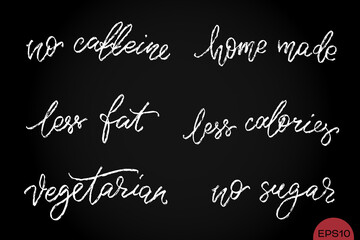 no caffeine
home made
less fat
less calories
vegetarian
no sugar
EPS10